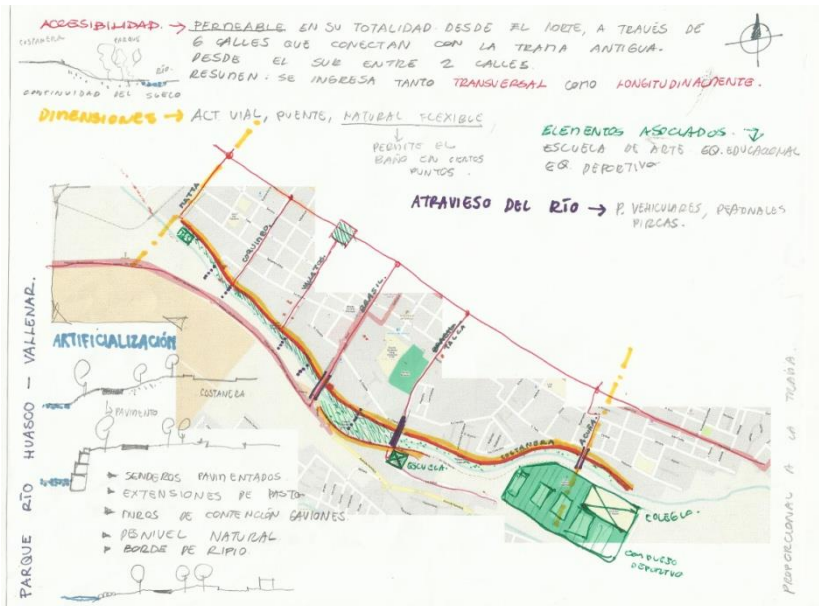 ACCESIBILIDAD. → PERMEABLE EN SU TOTALIDAD DESDE EL NORTE, A TRAVÉS DE
6 CALLES QUE CONECTAN CON LA TRAMA ANTIGUA.
DESDE EL SUR ENTRE 2 CALLES.
RESUMEN: SE INGRESA TANTO TRANSVERSAL COMO LONGITUDINALMENTE.
COSTANERA
PARQUE
RÍO.
CONTINUIDAD DEL SUELO
DIMENSIONES → ACT VIAL, PUENTE, NATURAL FLEXIBLE
PERMITE EL
BAÑO EN CIERTOS
PUNTOS.
ELEMENTOS ASOCIADOS.
ESCUELA DE ARTE EQ. EDUCACIONAL
EQ. DEPORTIVO
ATRAVIESO DEL RÍO → P. VEHICULARES, PEATONALES
PIRCAS.
MATTA
COQUIMBO
BRASIL
TALCA
COSTANERA
ESCUELA
COLEGIO
COMPLEJO
DEPORTIVO
ARTIFICIALIZACIÓN
COSTANERA
PAVIMENTO
SENDEROS PAVIMENTADOS
EXTENSIONES DE PASTO
MUROS DE CONTENCIÓN GAVIONES
DESNIVEL NATURAL
BORDE DE RIPIO
PARQUE RÍO HUASCO - VALLENAR.
PROPORCIONAL A LA TRAMA.